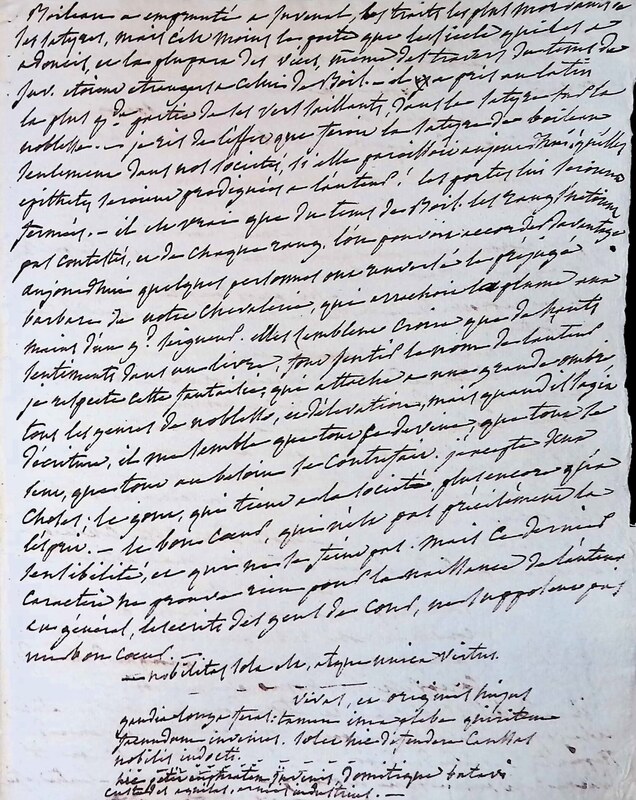 Boileau a emprunté a Juvenal, les traits les plus mordans de
ses satyres, mais cela moins la porte que le siecle qui les a
adoucis, et la plupart des vices, même des travers du tems de
Juv. étoient etrangers a celui de Boil. - il a pris au latin
la plus gde partie de ses vers saillants, dans la satyre sur la
noblesse. - je ris de l'effet que feroit la satyre de boileau
seulement dans nos societés, si elle paroissoit aujourd'hui, quelles
epithetes seroient prodiguées a l'auteur! les portes lui seroient
fermées. - il est vrai que du tems de Boil. les rangs n'etoient
pas contestés, et de chaque rang, l'on pouvoit accorder davantage
aujourdhui quelques personnes ont renversé le préjugé
barbare de notre chevalerie, qui arrachoit la plume aux
mains d'un gd seigneur. elles semblent croire que de hauts
sentiments dans un livre, font sentir le nom de l'auteur
je respecte cette fantaisie, qui attache a une grande ombre
tous les genres de noblesse, et d'élévation, mais quand il s'agit
d'écriture, il me semble que tout se devine que tout se
sent, que tout au besoin se contrefait. j'excepte deux
choses; le gout, qui tient a la société plus encore qu'a
l'esprit. - le bon coeur, qui n'est pas précisément la
sensibilité, et qui ne se feint pas. mais ce dernier
caractere ne prouve rien pour la naissance de l'auteur
en général, les écrits des gens de cour, ne supposent pas
un bon coeur.
- nobilitas sola est, atque unica virtus.
vivas, et originis hujus
gaudia longa feras: tamen ima plebe quiritem
facundum invenies. solet hic defendere causas
nobilis indocti.
hic petit euphraten juvenis, domitique batavi
custodes aquilas, armis industrius. -